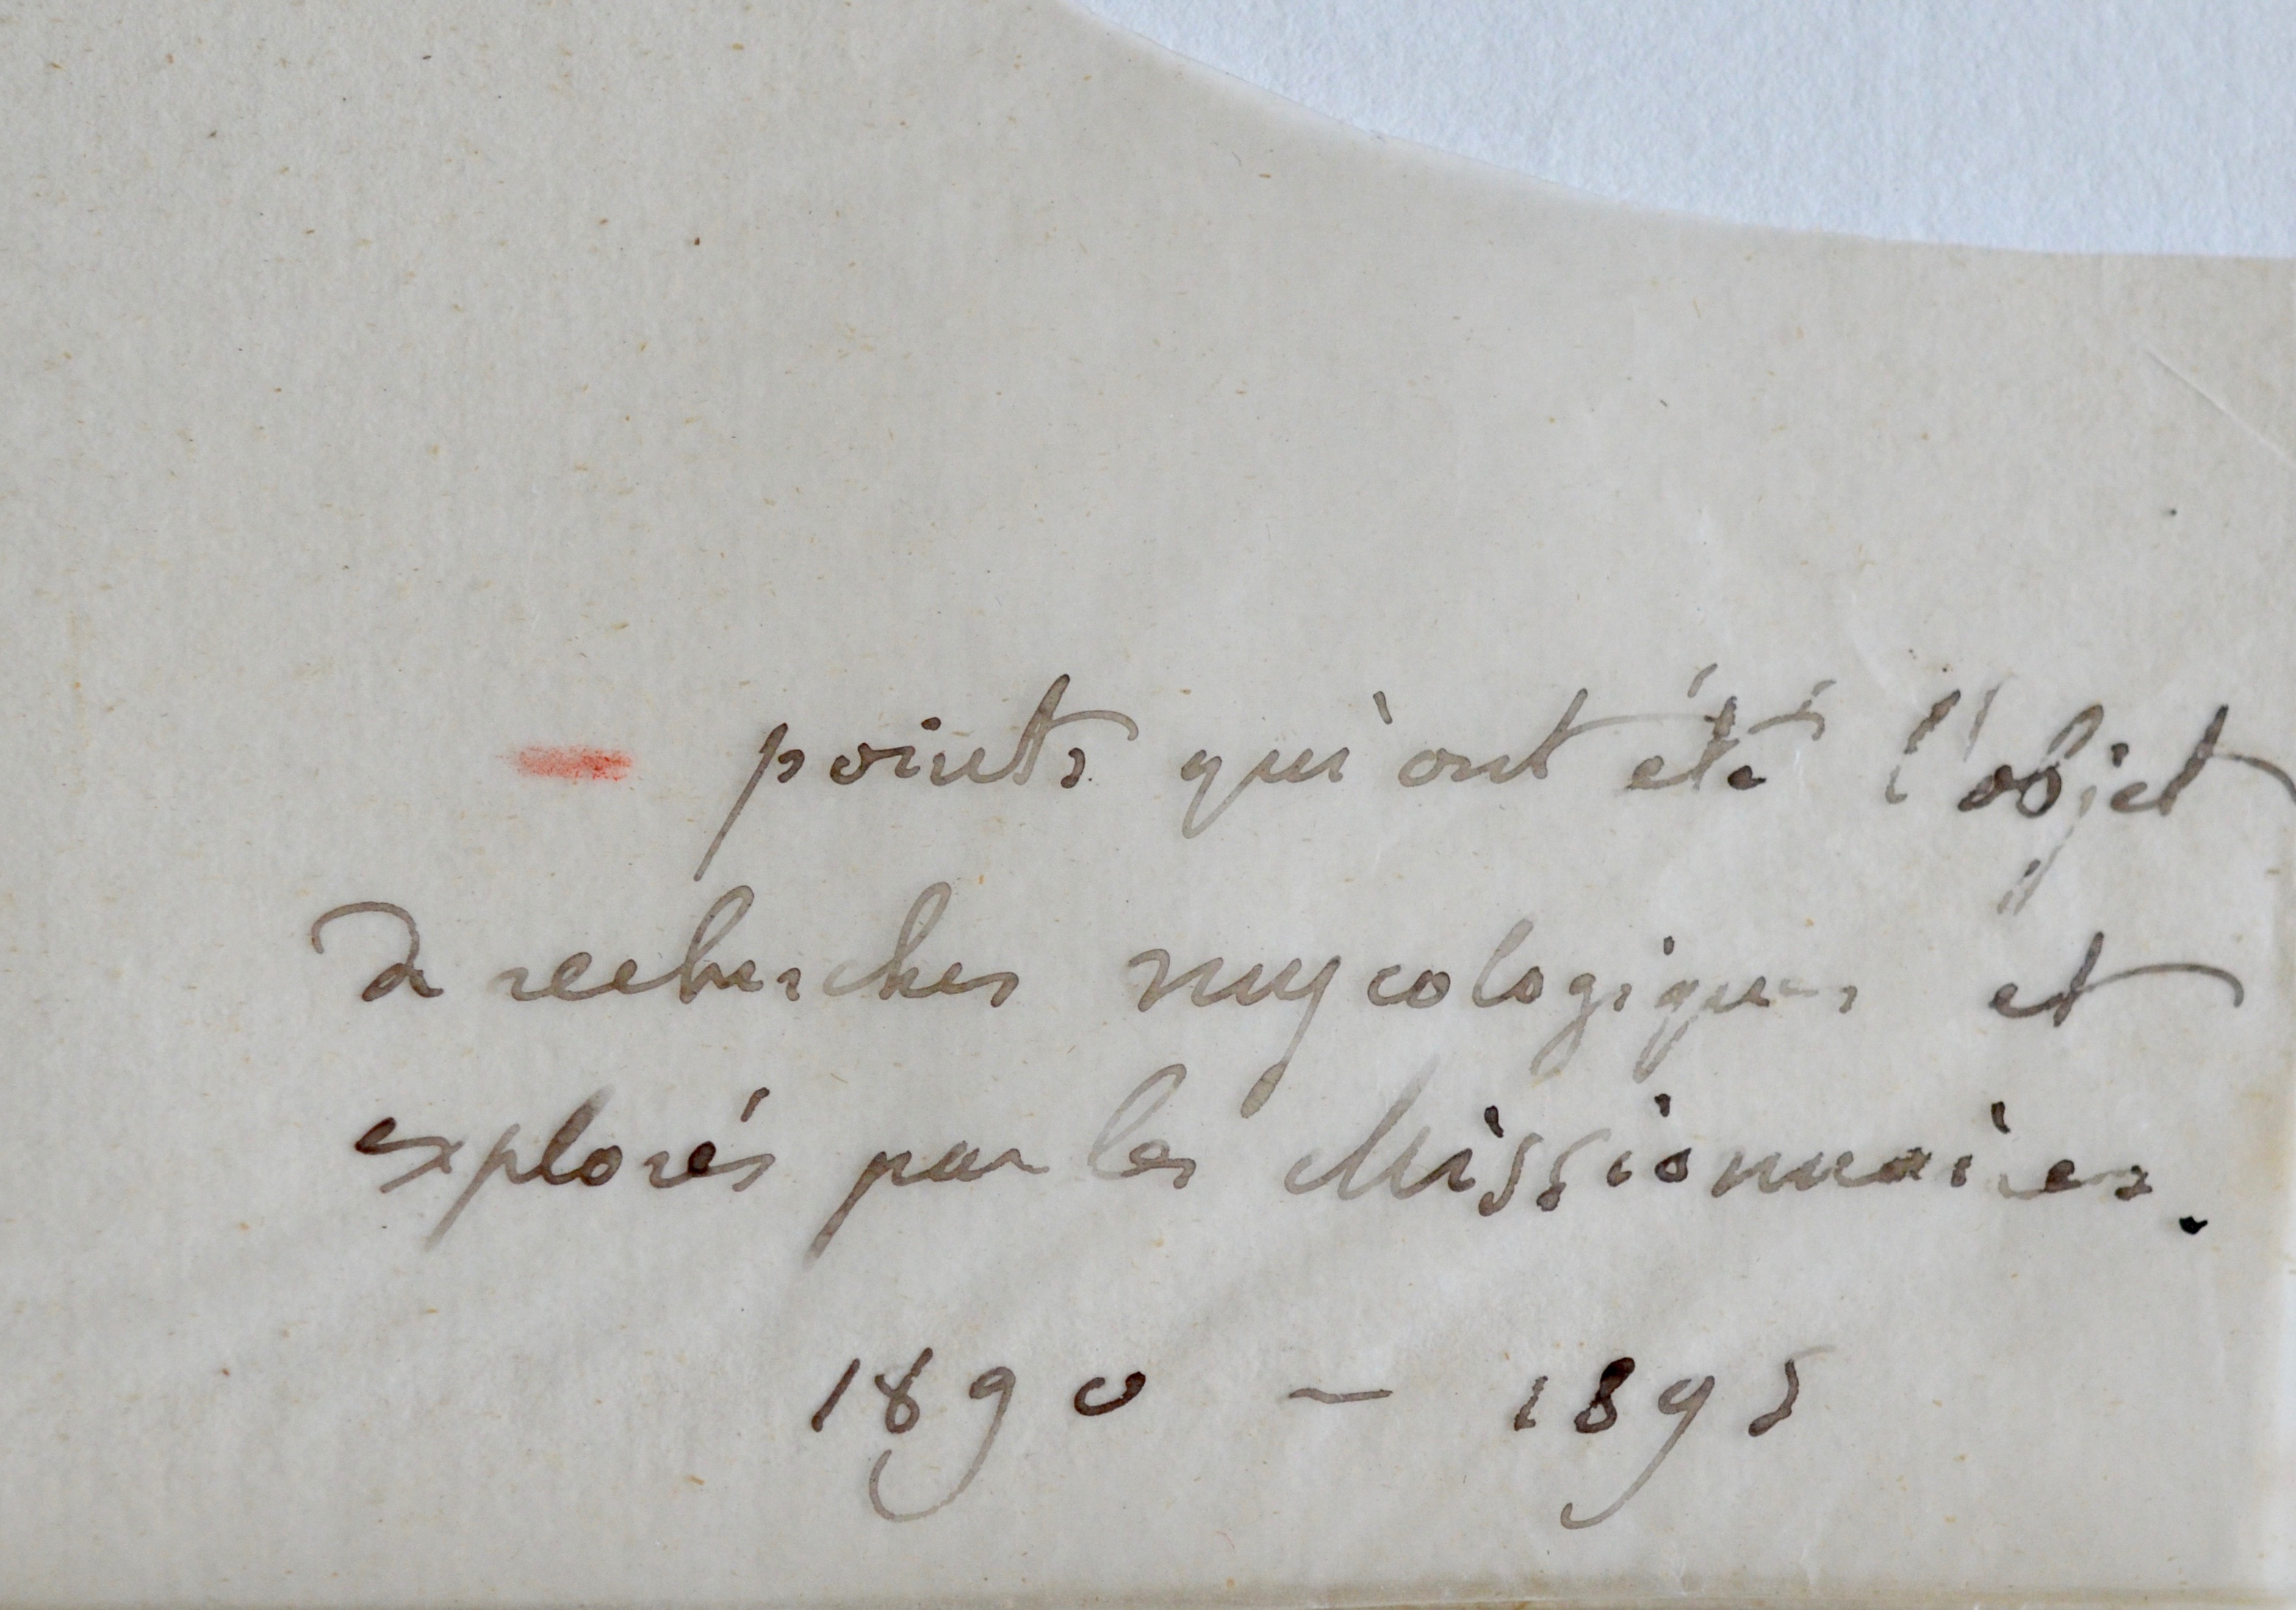 points qui ont été l'objet
de recherches mycologiques et
explorés par les Missionnaires.
1890 – 1895